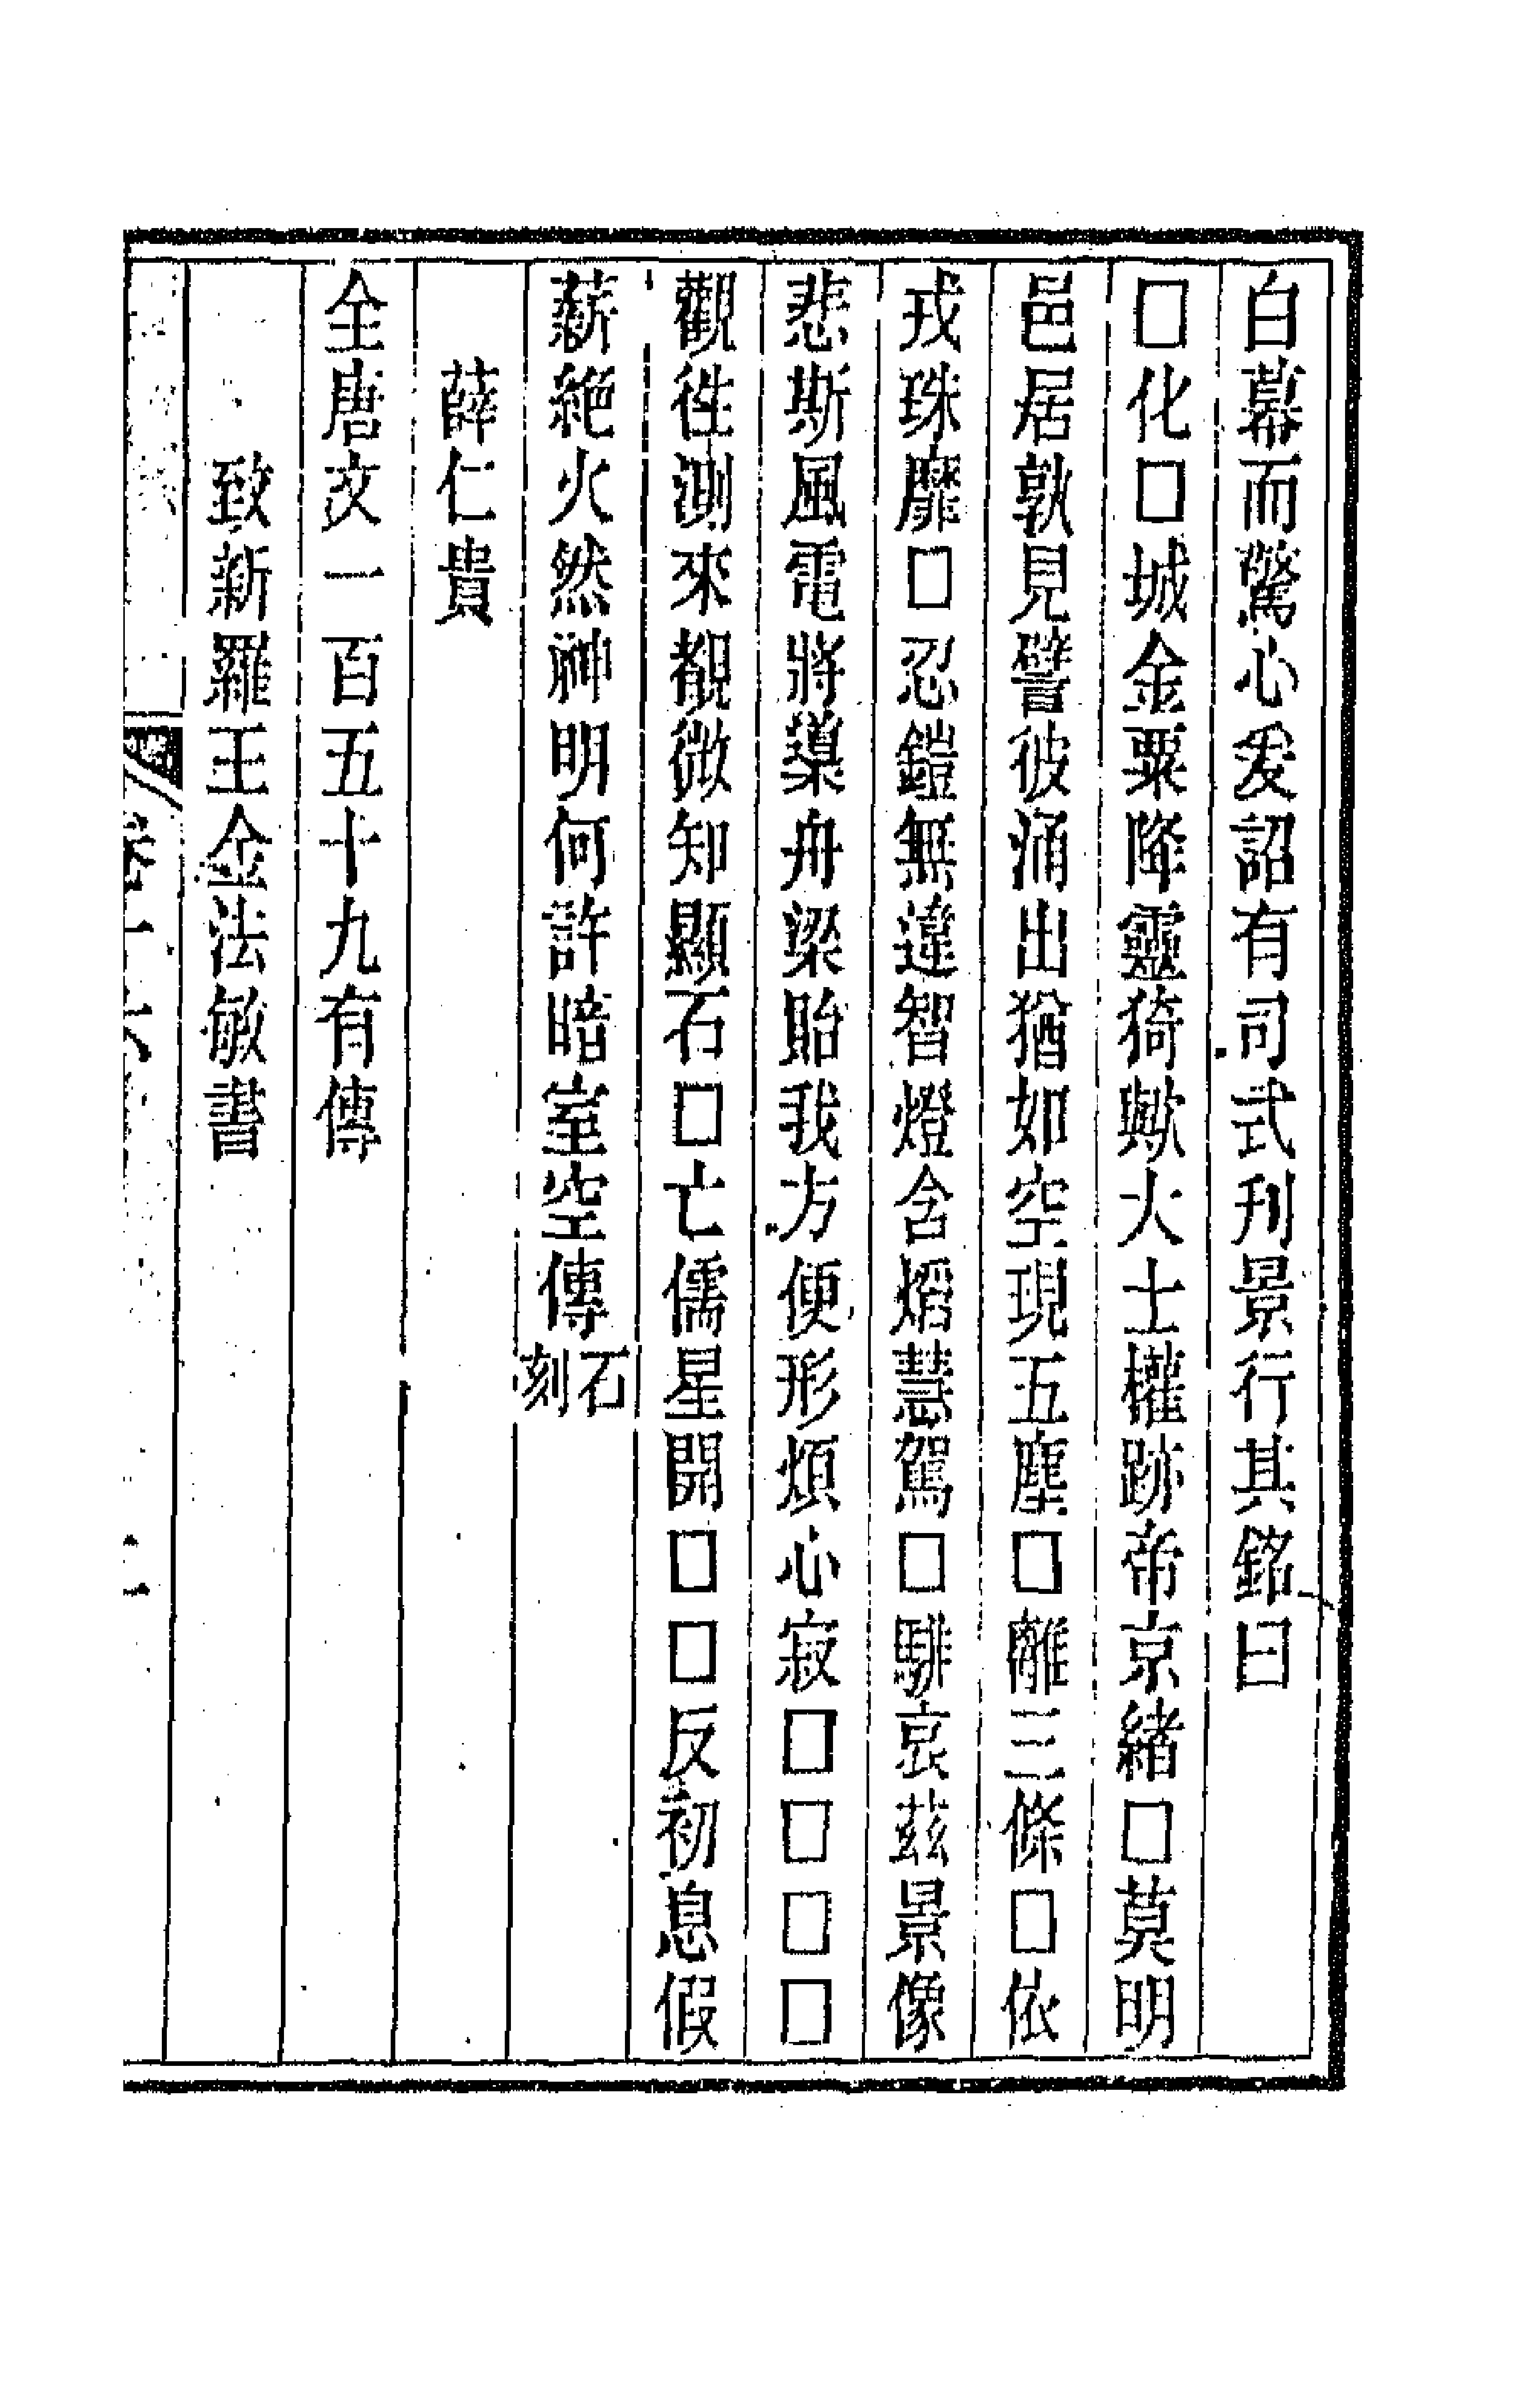 白幕而驚心爰詔有司式刋景行其銘曰
□化□城金粟降靈猗歟大士權跡帝京緒□莫明
邑居敦見譬彼涌出猶如空現五塵□離三條□依
戎珠靡□忍鎧無違智燈含熖慧駕□騑哀茲景像
悲斯風電將䆃舟梁貽我方便形煩心寂□□□□
觀徃測來覩微知顯石□亡儒星開□□反初息假
薪絶火然神明何許暗室空傳石刻
薛仁貴
全唐文一百五十九有傳
致新羅王金法敏書
卷十六